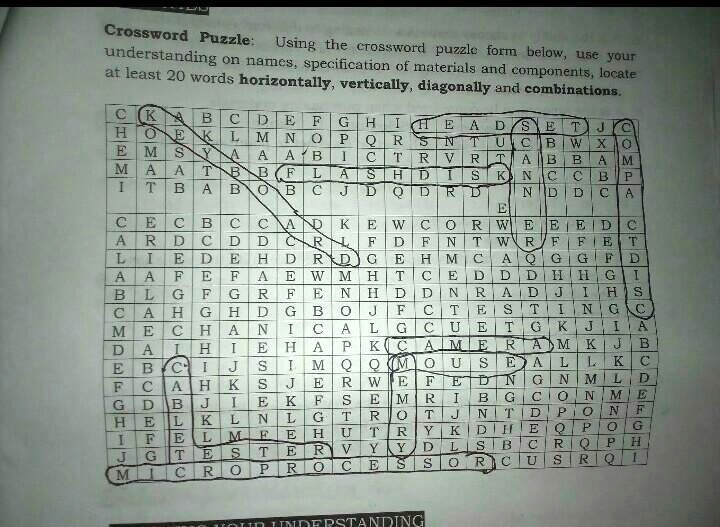 Crossword Puzzle: Using the crossword puzzle form below, use your
understanding on names, specification of materials and components, locate
at least 20 words horizontally, vertically, diagonally and combinations.
C K A B C D E F G H I H E A D S E T J C
H O E K L M N O P Q R S N T U C B W X O
E M S Y A A A B I C T R V R T A B B A M
M A A T B B F L A S H D I S K N C C B P
I T B A B O B C J D Q D R D N D D C A
E
C E C B C C A D K E W C O R W E E E D C
A R D C D D C R L F D F N T W R F F E T
L I E D E H D R D G E H M C A Q G G F D
A A F E F A E W M H T C E D D D H H G I
B L G F G R F E N H D D N R A D J I H S
C A H G H D G B O J F C T E S T I N G C
M E C H A N I C A L G C U E T G K J I A
D A I H I E H A P K C A M E R A M K J B
E B C I J S I M Q Q M O U S E A L L K C
F C A H K S J E R W E F E D N G N M L D
G D B J I E K F S E M R I B G C O N M E
H E L K L N L G T R O T J N T D P O N F
I F E L M F E H U T R Y K D H E Q P O G
J G T E S T E R V Y Y D L S B C R Q P H
M I C R O P R O C E S S O R C U S R Q I